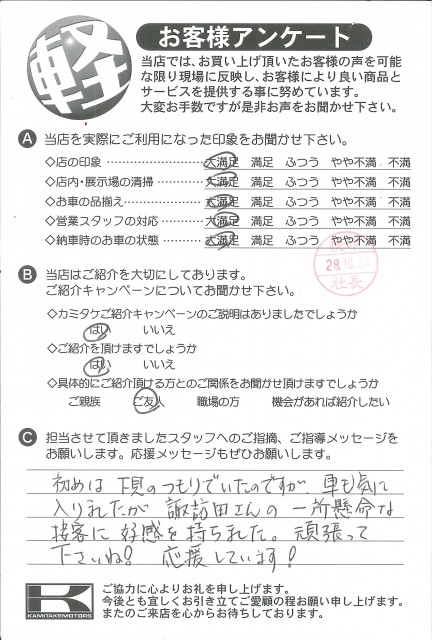 軽
お客様アンケート
当店では、お買い上げ頂いたお客様の声を可能
な限り現場に反映し、お客様により良い商品と
サービスを提供する事に努めています。
大変お手数ですが是非お声をお聞かせ下さい。
A 当店を実際にご利用になった印象をお聞かせ下さい。
◇店の印象 大満足 満足 ふつう やや不満 不満
◇店内・展示場の清掃 大満足 満足 ふつう やや不満 不満
◇お車の品揃え 大満足 満足 ふつう やや不満 不満
◇営業スタッフの対応 大満足 満足 ふつう やや不満 不満
◇納車時のお車の状態 大満足 満足 ふつう やや不満 不満
社長
B 当店はご紹介を大切にしてあります。
ご紹介キャンペーンについてお聞かせ下さい。
◇カミタケご紹介キャンペーンのご説明はありましたでしょうか
はい いいえ
◇ご紹介を頂けますでしょうか
はい いいえ
◇具体的にご紹介頂ける方とのご関係をお聞かせ頂けますでしょうか
ご親族 ご友人 職場の方 機会があれば紹介したい
C 担当させて頂きましたスタッフへのご指摘、ご指導メッセージを
お願いします。応援メッセージもぜひお願いします。
初めは下見のつもりでいたのですが、車も気に
入りましたが 諏訪田さんの一所懸命な
接客に好感を持ちました。頑張って
下さいね! 応援しています!
K
KAMITAKEMOTORS
ご協力に心よりお礼を申し上げます。
今後とも宜しくお引き立てご愛顧の程お願い申し上げます。
またのご来店を心からお待ちしております。